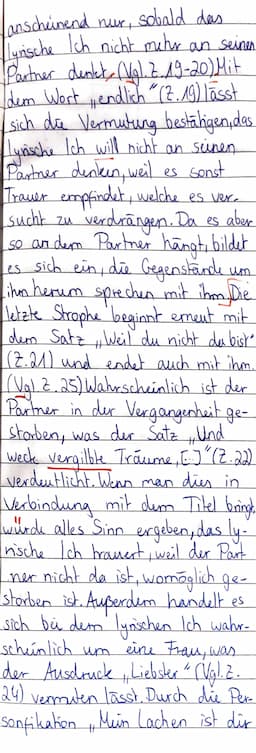 anscheinend nur, sobald das
lyrische Ich nicht mehr an seinen
Partner denkt. (Vgl. Z. 19-20) Mit
dem Wort „endlich" (Z. 19) lässt
sich die Vermutung bestätigen, das
lyrische Ich will nicht an seinen
Partner denken, weil es sonst
Trauer empfindet, welche es ver-
sucht zu verdrängen. Da es aber
so an dem Partner hängt, bildet
es sich ein, die Gegenstände um
ihn herum sprechen mit ihm. Die
letzte Strophe beginnt erneut mit
dem Satz „Weil du nicht da bist"
(Z. 21) und endet auch mit ihm.
(Vgl. Z. 25) Wahrscheinlich ist der
Partner in der Vergangenheit ge-
storben, was der Satz „Und
weck vergilbte Träume, [..]" (Z. 22)
verdeutlicht. Wenn man dies in
Verbindung mit dem Titel bringt,
würde alles Sinn ergeben, das ly-
rische Ich trauert, weil der Part
ner nicht da ist, womöglich ge-
storben ist. Außerdem handelt es
sich bei dem lyrischen Ich wahr-
scheinlich um eine Frau, was
der Ausdruck „Liebster" (Vgl. Z.
24) vermuten lässt. Durch die Per-
sonifikation „Mein Lachen ist dir